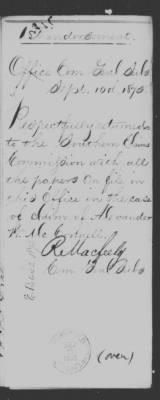 1st endorsement.
Office Com Genl Subs
Sept. 10th 1875.
Respectfully returned
to the Southern Claims
Commission with all
the papers on file in
this Office in the case
of claim of Meander
W. Mc
R. Macfeely
Com Genl Subs
(over)